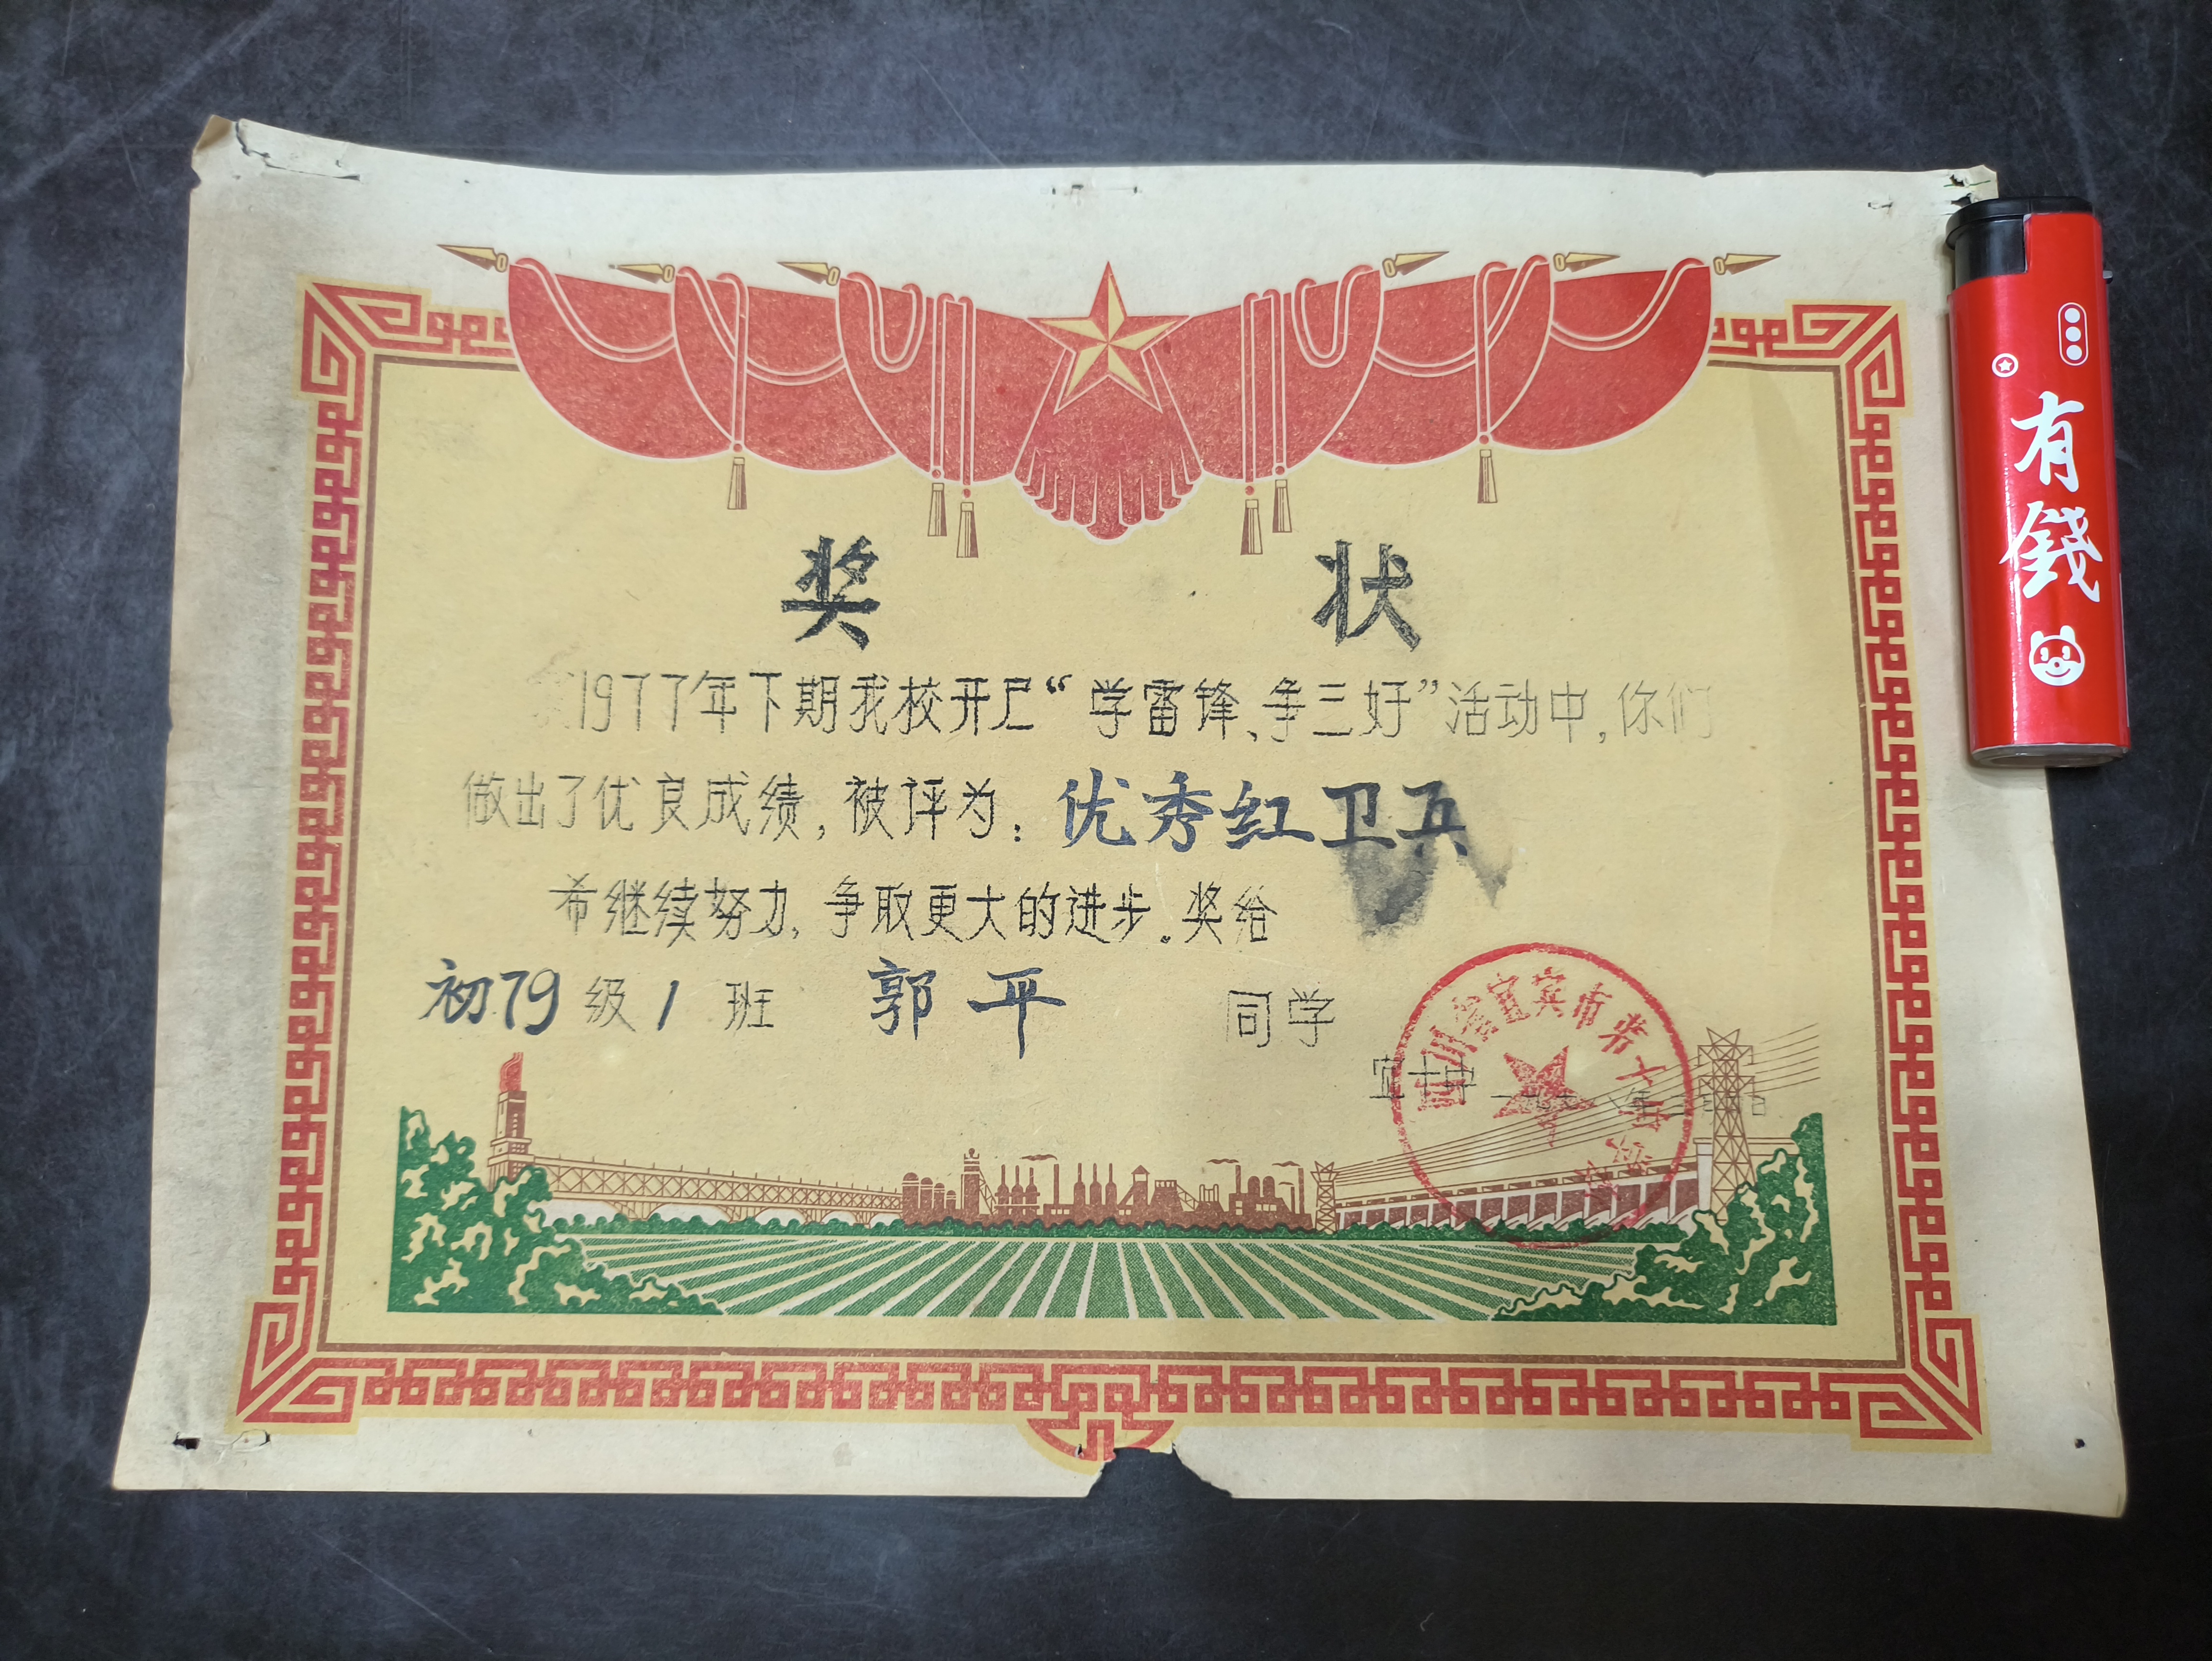 奖状
1977年下期我校开尸“学雷锋、争三好”活动中,你们
做出了优良成绩,被评为:优秀红卫兵
希继续努力,争取更大的进步。奖给
初79级1班 郭平 同学
四川省宜宾市第十
有錢